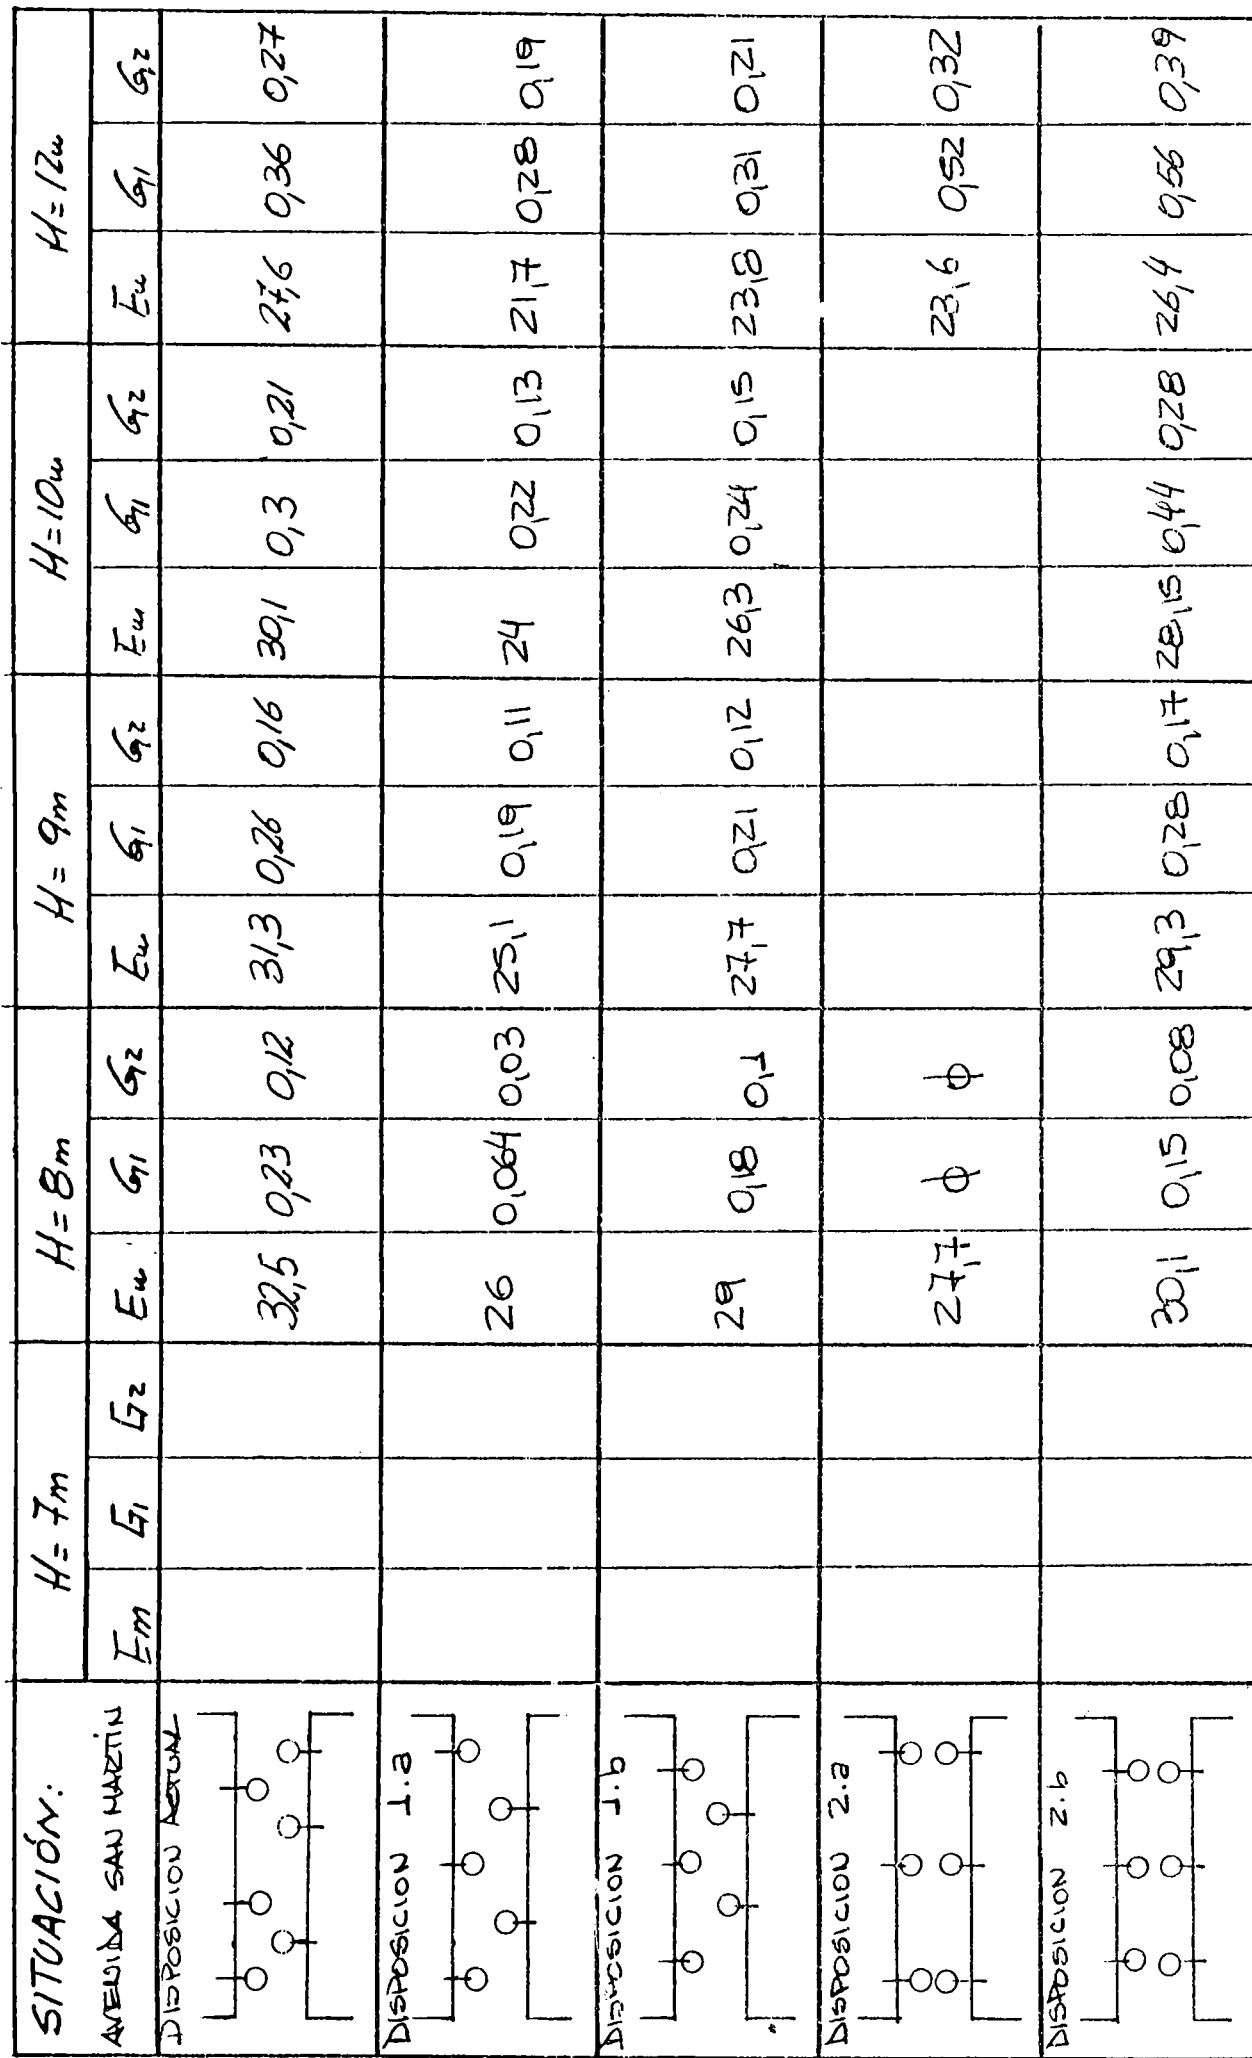 SITUACIÓN: H= 7m H= 8m H= 9m H=10m H=12m
AVENIDA SAN MARTÍN Em G1 G2 Em G1 G2 Em G1 G2 Em G1 G2 Em G1 G2
DISPOSICION ACTUAL 32,5 0,23 0,12 31,3 0,26 0,16 30,1 0,3 0,21 27,6 0,36 0,27
DISPOSICION 1.a 26 0,064 0,03 25,1 0,19 0,11 24 0,22 0,13 21,7 0,28 0,19
DISPOSICION 1.b 29 0,18 0,1 27,7 0,21 0,12 26,3 0,24 0,15 23,8 0,31 0,21
DISPOSICION 2.a 27,7 ϕ ϕ 23,6 0,52 0,32
DISPOSICION 2.b 30,1 0,15 0,08 29,3 0,28 0,17 28,15 0,44 0,28 26,4 0,56 0,39